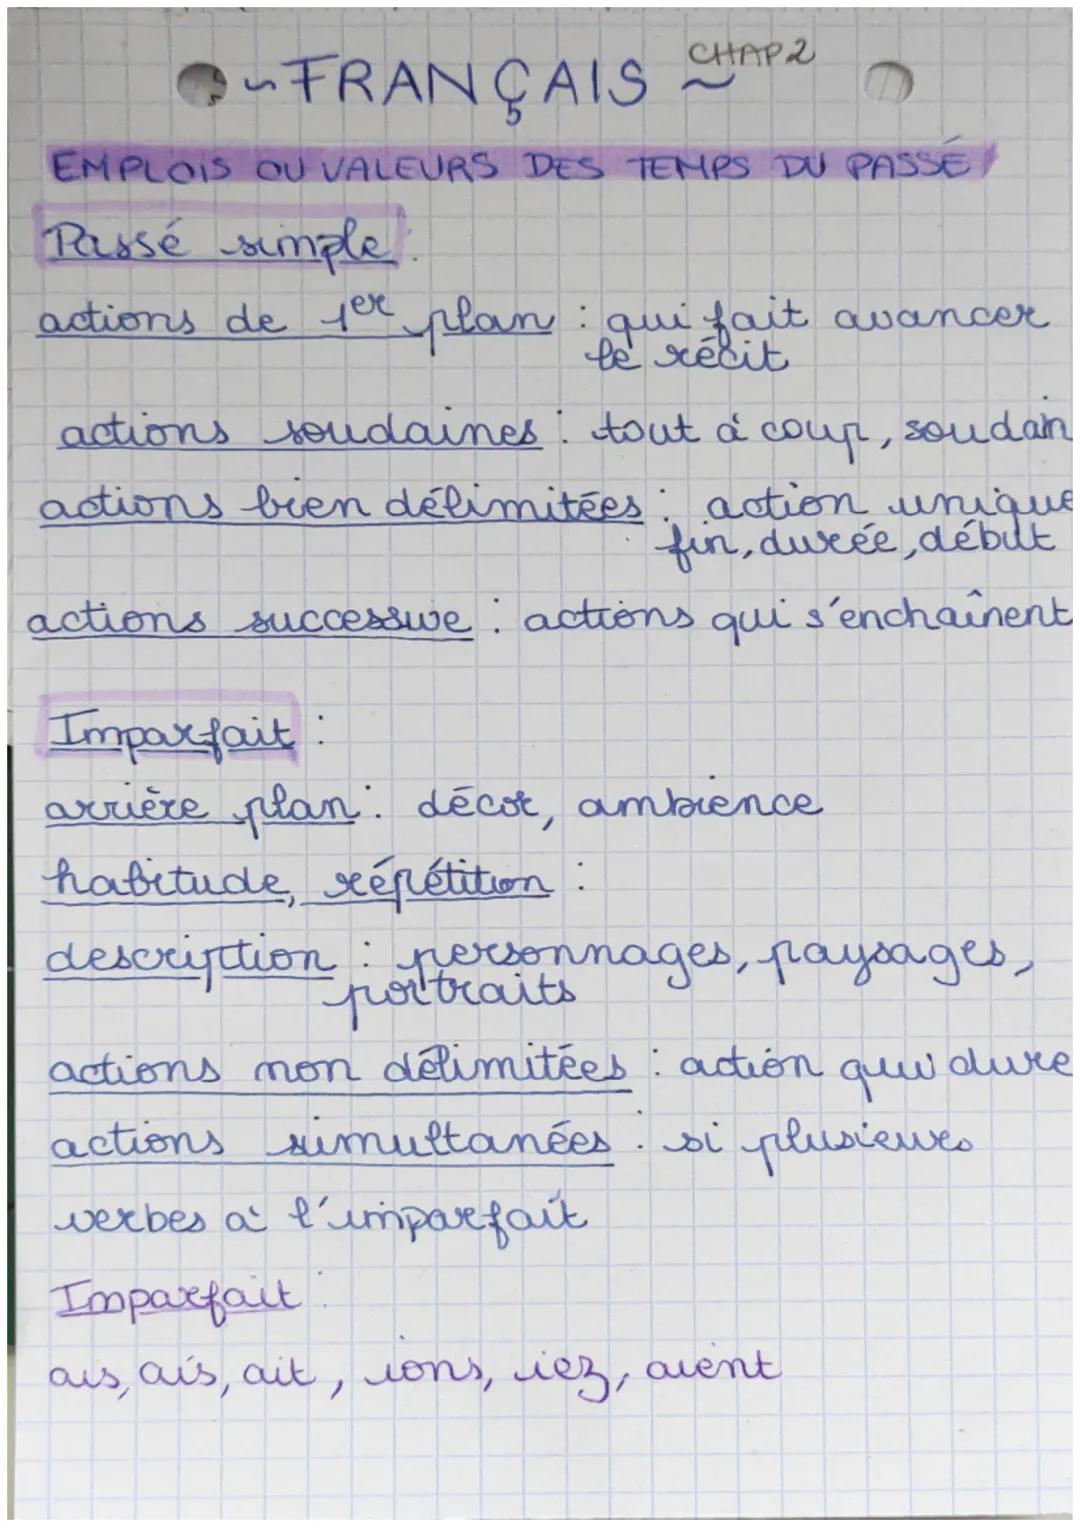 ~ FRANÇAIS ~ CHAP 2
EMPLOIS OU VALEURS DES TEMPS DU PASSÉ
Passé simple :
actions de 1er plan : qui fait avancer
le récit
actions soudaines : tout à coup, soudain
actions bien délimitées : action unique
fin, durée, début
actions successive : actions qui s'enchaînent
Imparfait :
arrière plan : décor, ambience
habitude, répétition :
description : personnages, paysages,
portraits
actions non délimitées : action qui dure
actions simultanées : si plusieurs
verbes à l'imparfait
Imparfait :
ais, ais, ait, ions, iez, aient